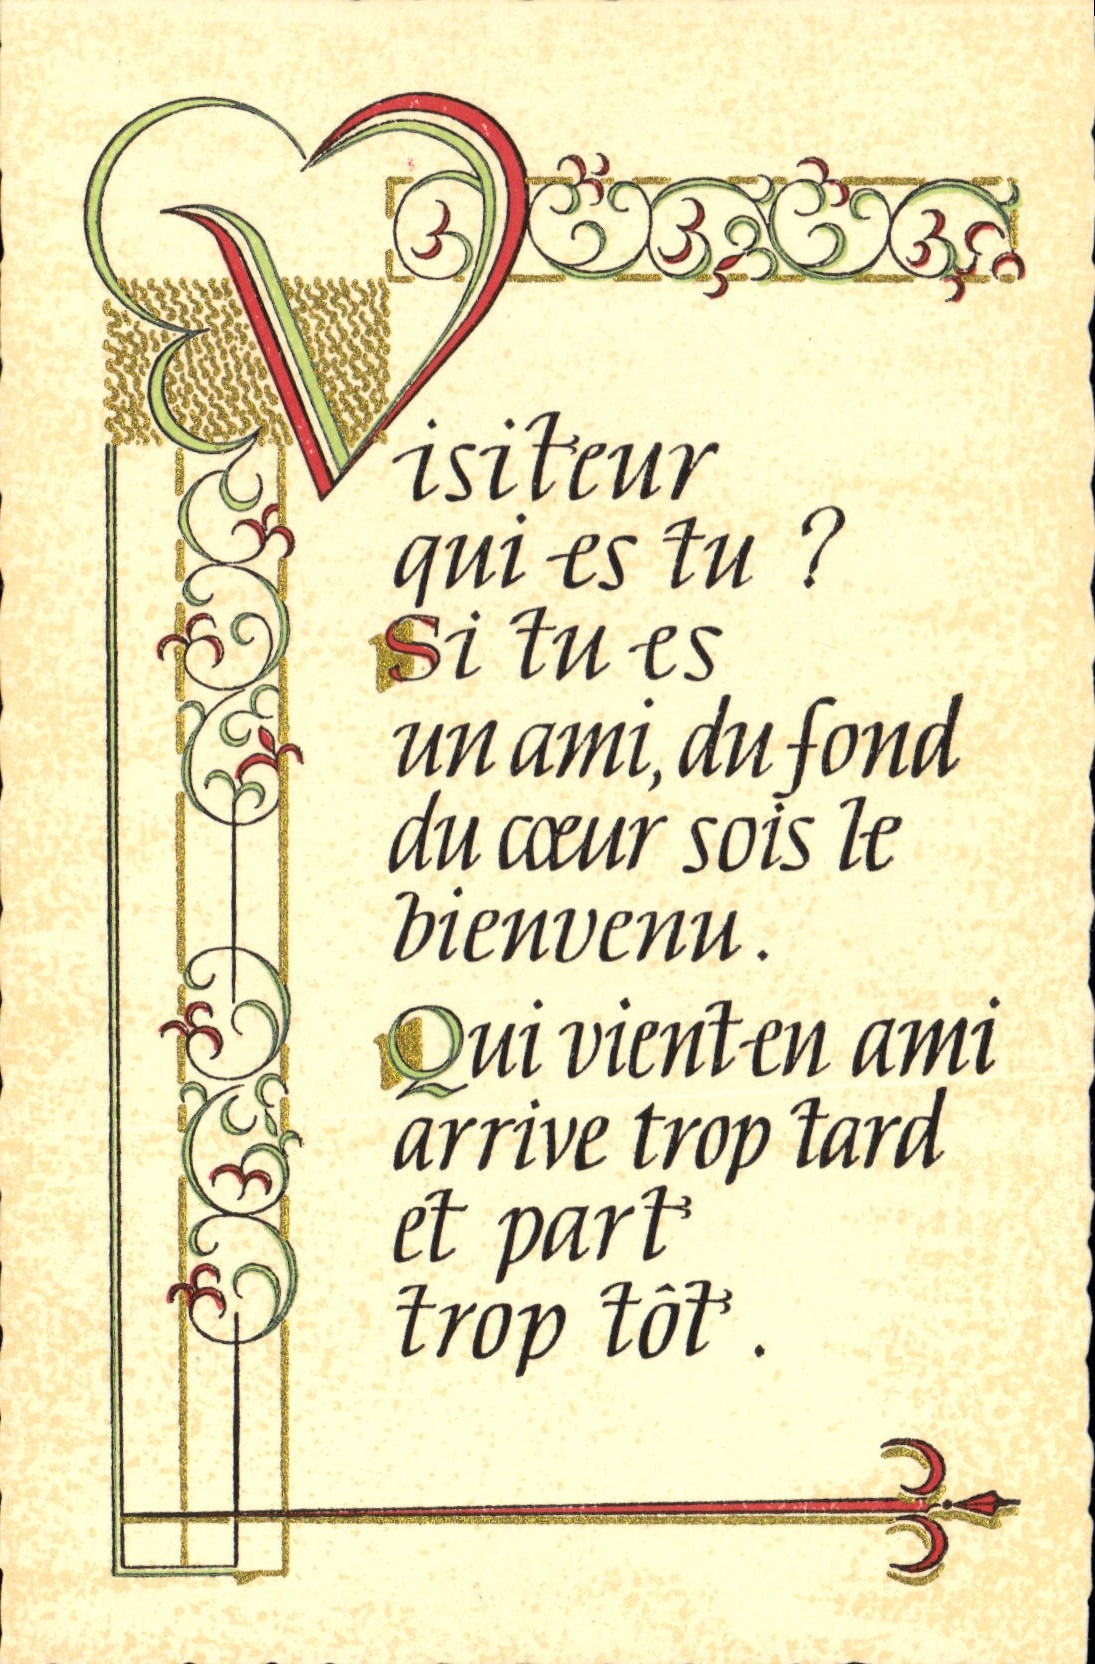 Visiteur
qui es tu ?
Si tu es
un ami, du fond
du cœur sois le
bienvenu.
Qui vient en ami
arrive trop tard
et part
trop tôt.